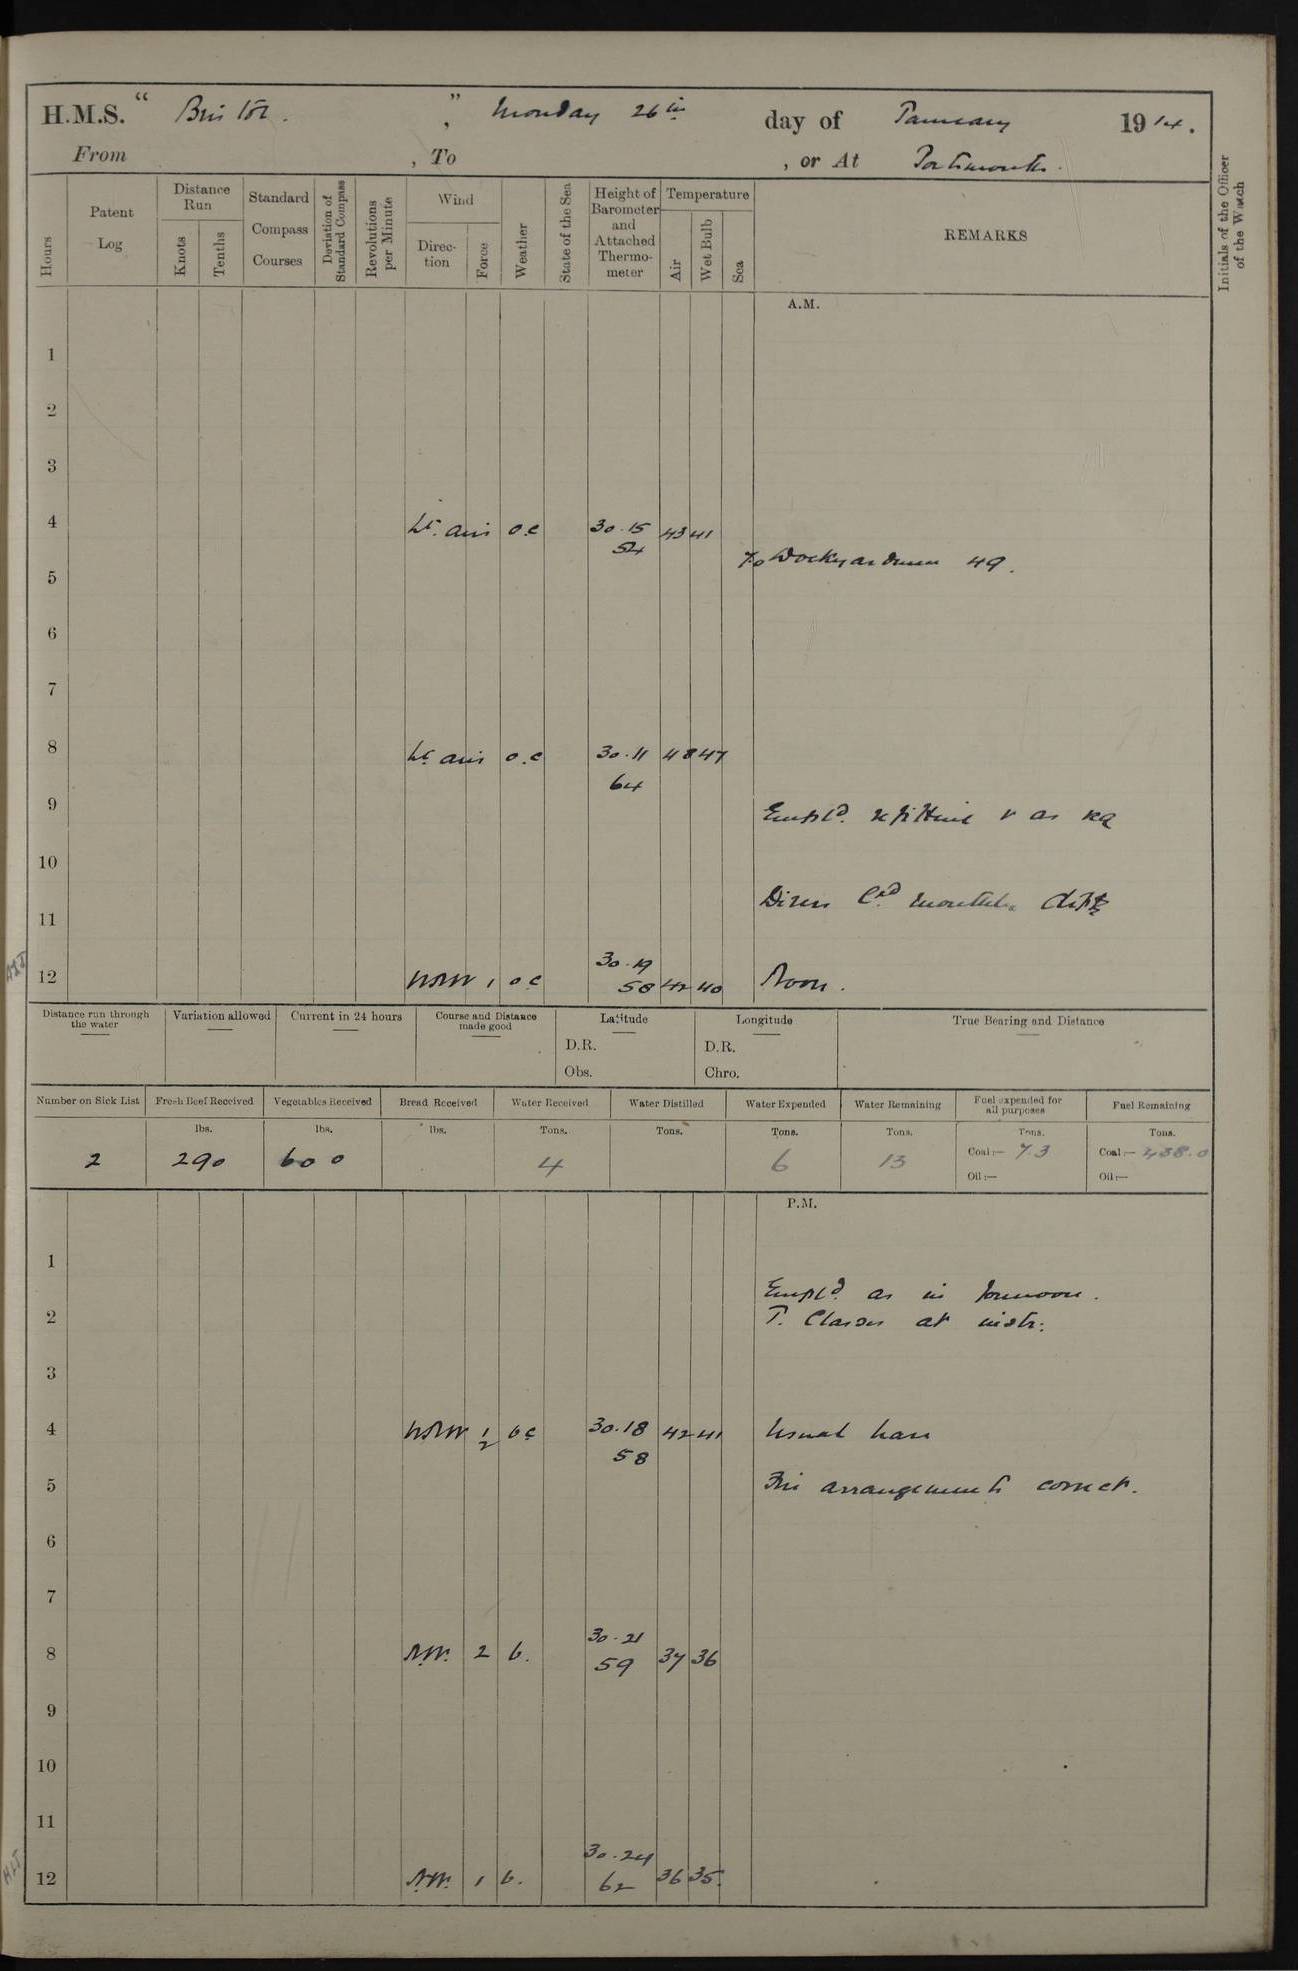 H.M.S. " Bristol. ", Monday 26th day of January 1914.
From , To , or At Portsmouth.
Hours
Patent Log
Distance Run
Knots
Tenths
Standard Compass Courses
Deviation of Standard Compass
Revolutions per Minute
Wind
Direction
Force
Weather
State of the Sea
Height of Barometer and Attached Thermometer
Temperature
Air
Wet Bulb
Sea
REMARKS
Initials of the Officer of the Watch
A.M.
1
2
3
4 Lt. airs o.c 30.15 43 41
54
Dockyardmen 49.
5
6
7
8 Lt airs o.c 30.11 48 47
64
9
Empld. refitting & as req
10
11
30.19
12 WNW 1 o c 58 42 40 Noon.
Distance run through the water
Variation allowed
Current in 24 hours
Course and Distance made good
Latitude
D.R.
Obs.
Longitude
D.R.
Chro.
True Bearing and Distance
Number on Sick List Fresh Beef Received Vegetables Received Bread Received Water Received Water Distilled Water Expended Water Remaining Fuel expended for all purposes Fuel Remaining
lbs. lbs. lbs. Tons. Tons. Tons. Tons. Tons. Tons.
2 290 600 4 6 13 Coal:— 7.3 Coal:— 438.0
Oil:— Oil:—
P.M.
1
Empld. as in forenoon.
2 T. Classes at instr:
3
4 WNW 1/2 b c 30.18 42 41
58
5 Fire arrangements correct.
6
7
30.21
8 NW. 2 b. 59 37 36
9
10
11
30.24
12 NW. 1 b. 62 36 35.